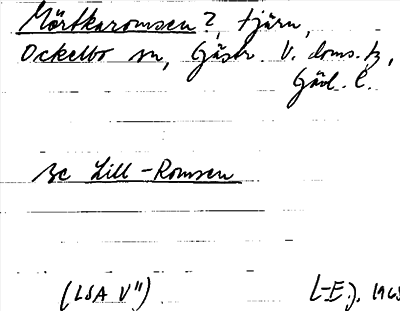 Mörtkaromsen?, tjärn,
Ockelbo sn, Gästr. V. doms.,
Gävl. l.
se Lill-Romsen
(LSA V")
L-E.J. 1965